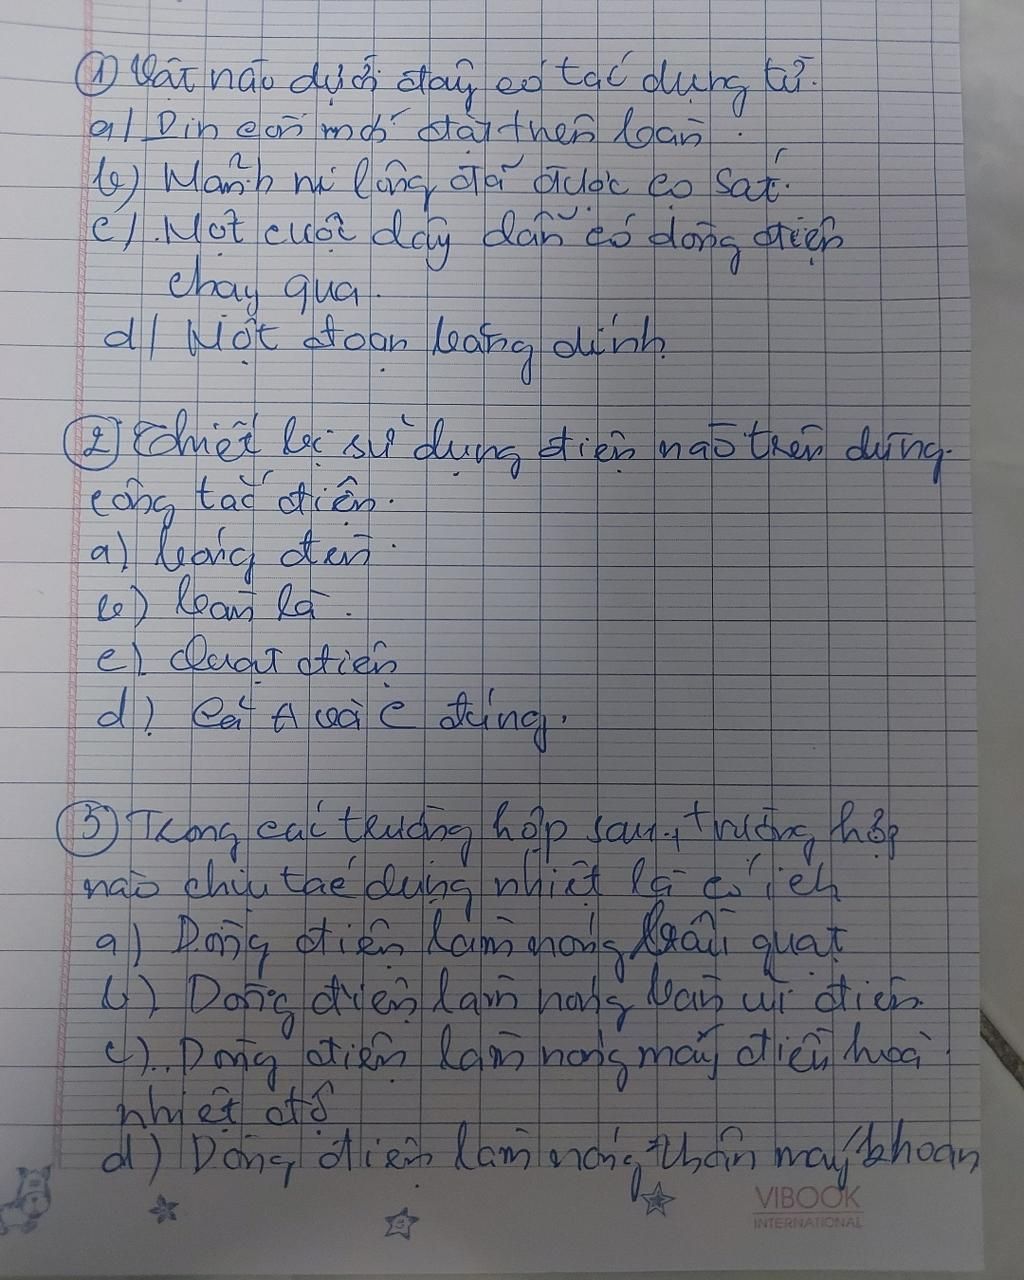 ① Vật nào dưới đây có tác dụng từ.
a/ Pin còn mới đặt trên bàn.
b) Mảnh ni lông đã được cọ sát.
c). Một cuộn dây dẫn có dòng điện
chạy qua.
d/ Một đoạn băng dính.
② Thiết bị sử dụng điện nào trên dùng
công tắc điện.
a) bóng đèn.
b) bàn là.
c) Quạt điện
d) Cả A và C đúng.
③ Trong các trường hợp sau, trường hợp
nào chịu tác dụng nhiệt là có ích
a) Dòng điện làm nóng bầu quạt
b) Dòng điện làm nóng bàn ủi điện.
c). Dòng điện làm nóng máy điều hoà
nhiệt độ
d) Dòng điện làm nóng thân máy khoan
VIBOOK
INTERNATIONAL